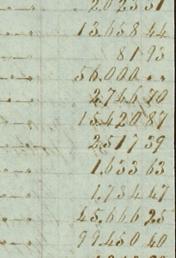 2.023 31
13.658 44
81 93
56.000 ..
2.746 70
15.420 87
2.517 39
1.633 63
1.734 47
45.666 25
99.450 40